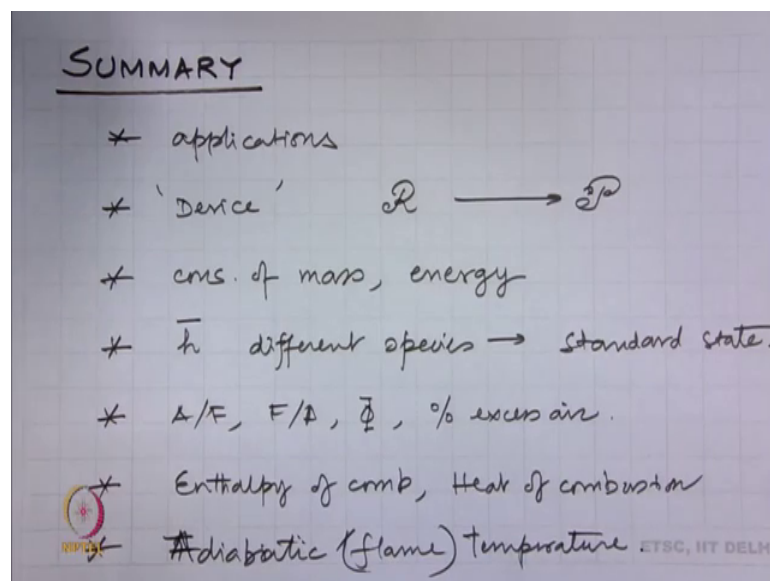 SUMMARY
* applications
* 'Device' R ⟶ P
* cons. of mass, energy
* h̅ different species → standard state.
* A/F, F/A, Φ̅, % excess air.
* Enthalpy of comb, Heat of combustion
* Adiabatic (flame) temperature.
ETSC, IIT DELH